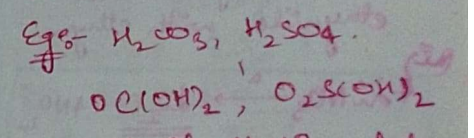 Eg:- H₂CO₃, H₂SO₄.
OC(OH)₂, O₂S(OH)₂